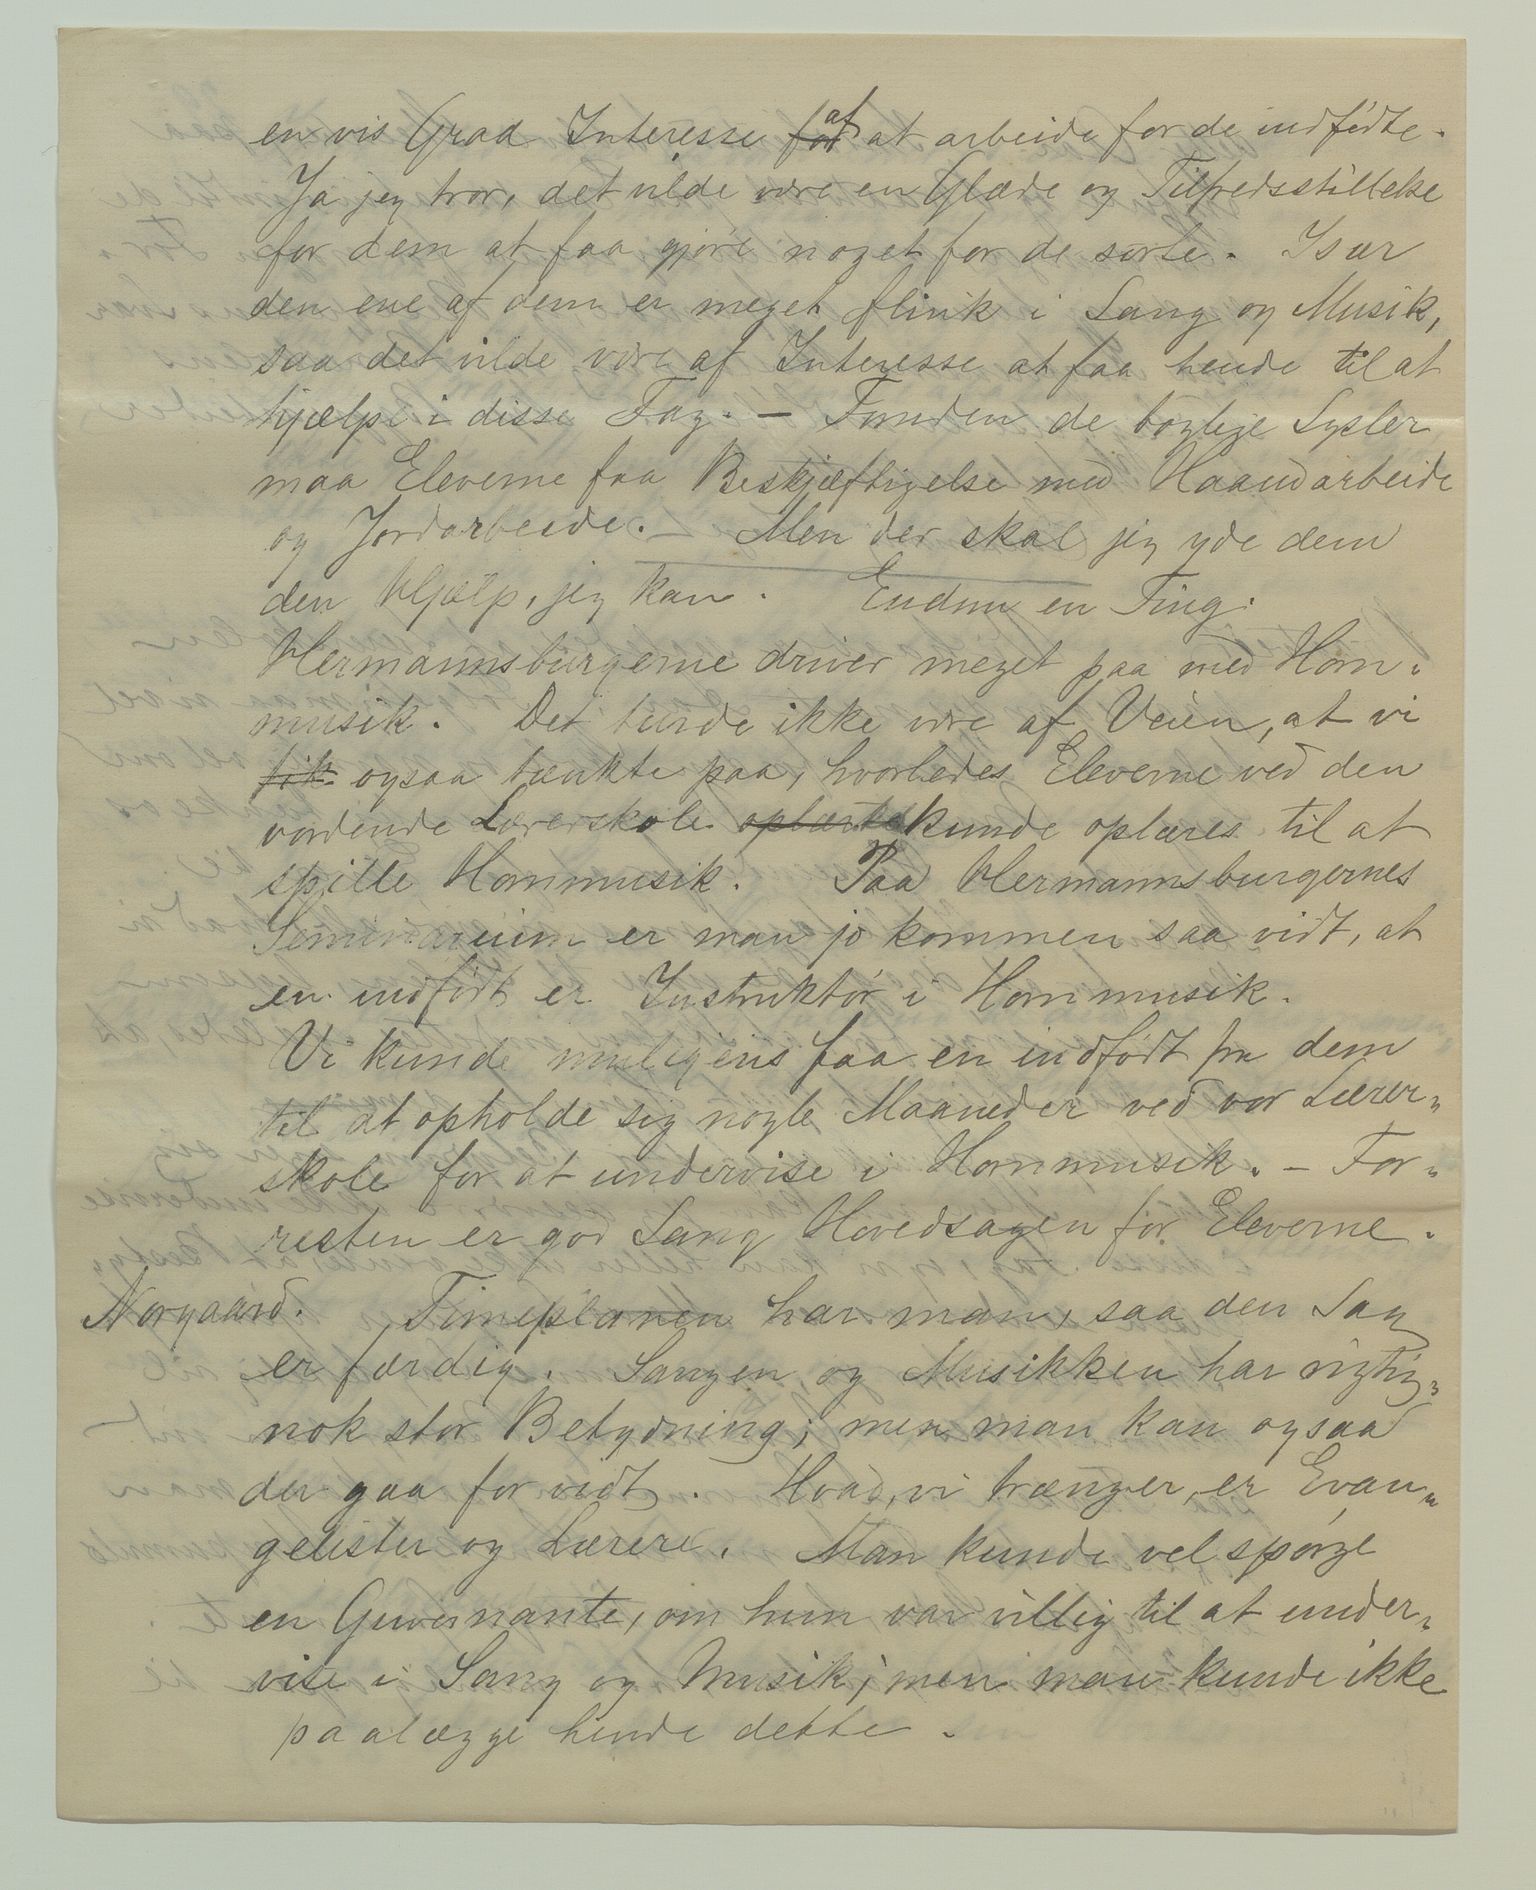 en vis Grad Interesse for af at arbeide for de indfødte.
Ja jeg tror, det vilde være en Glæde og Tilfredsstillelse
for dem at faa gjøre noget for de sorte. Især
den ene af dem er meget flink i Sang og Musik,
saa det vilde være af Interesse at faa hende til at
hjælpe i disse Fag. – Foruden de boglige Sysler
maa Eleverne faa Beskjæftigelse med Haandarbeide
og Jordarbeide. – Men der skal jeg yde dem
den Hjælp, jeg kan. Endnu en Ting.
Hermannsburgerne driver meget paa med Horn-
musik. Det turde ikke være af Veien, at vi
fik ogsaa tænkte paa, hvorledes Eleverne ved den
vordende Lærerskole oplærtes kunde oplæres til at
spille Hornmusik. Paa Hermannsburgernes
Seminarium er man jo kommen saa vidt, at
en indfødt er Instruktør i Hornmusik.
Vi kunde muligens faa en indfødt fra dem
til at opholde sig nogle Maaneder ved vor Lærer-
skole for at undervise i Hornmusik. – For-
resten er god Sang Hovedsagen for Eleverne.
Norgaard. Timeplanen har man, saa den Sag
er færdig. Sangen og Musikken har rigtig-
nok stor Betydning; men man kan ogsaa
der gaa for vidt. Hvad vi trænger, er Evan-
gelister og Lærere. Man kunde vel spørge
en Guvernante, om hun var villig til at under-
vise i Sang og Musik; men man kunde ikke
paalægge hende dette.